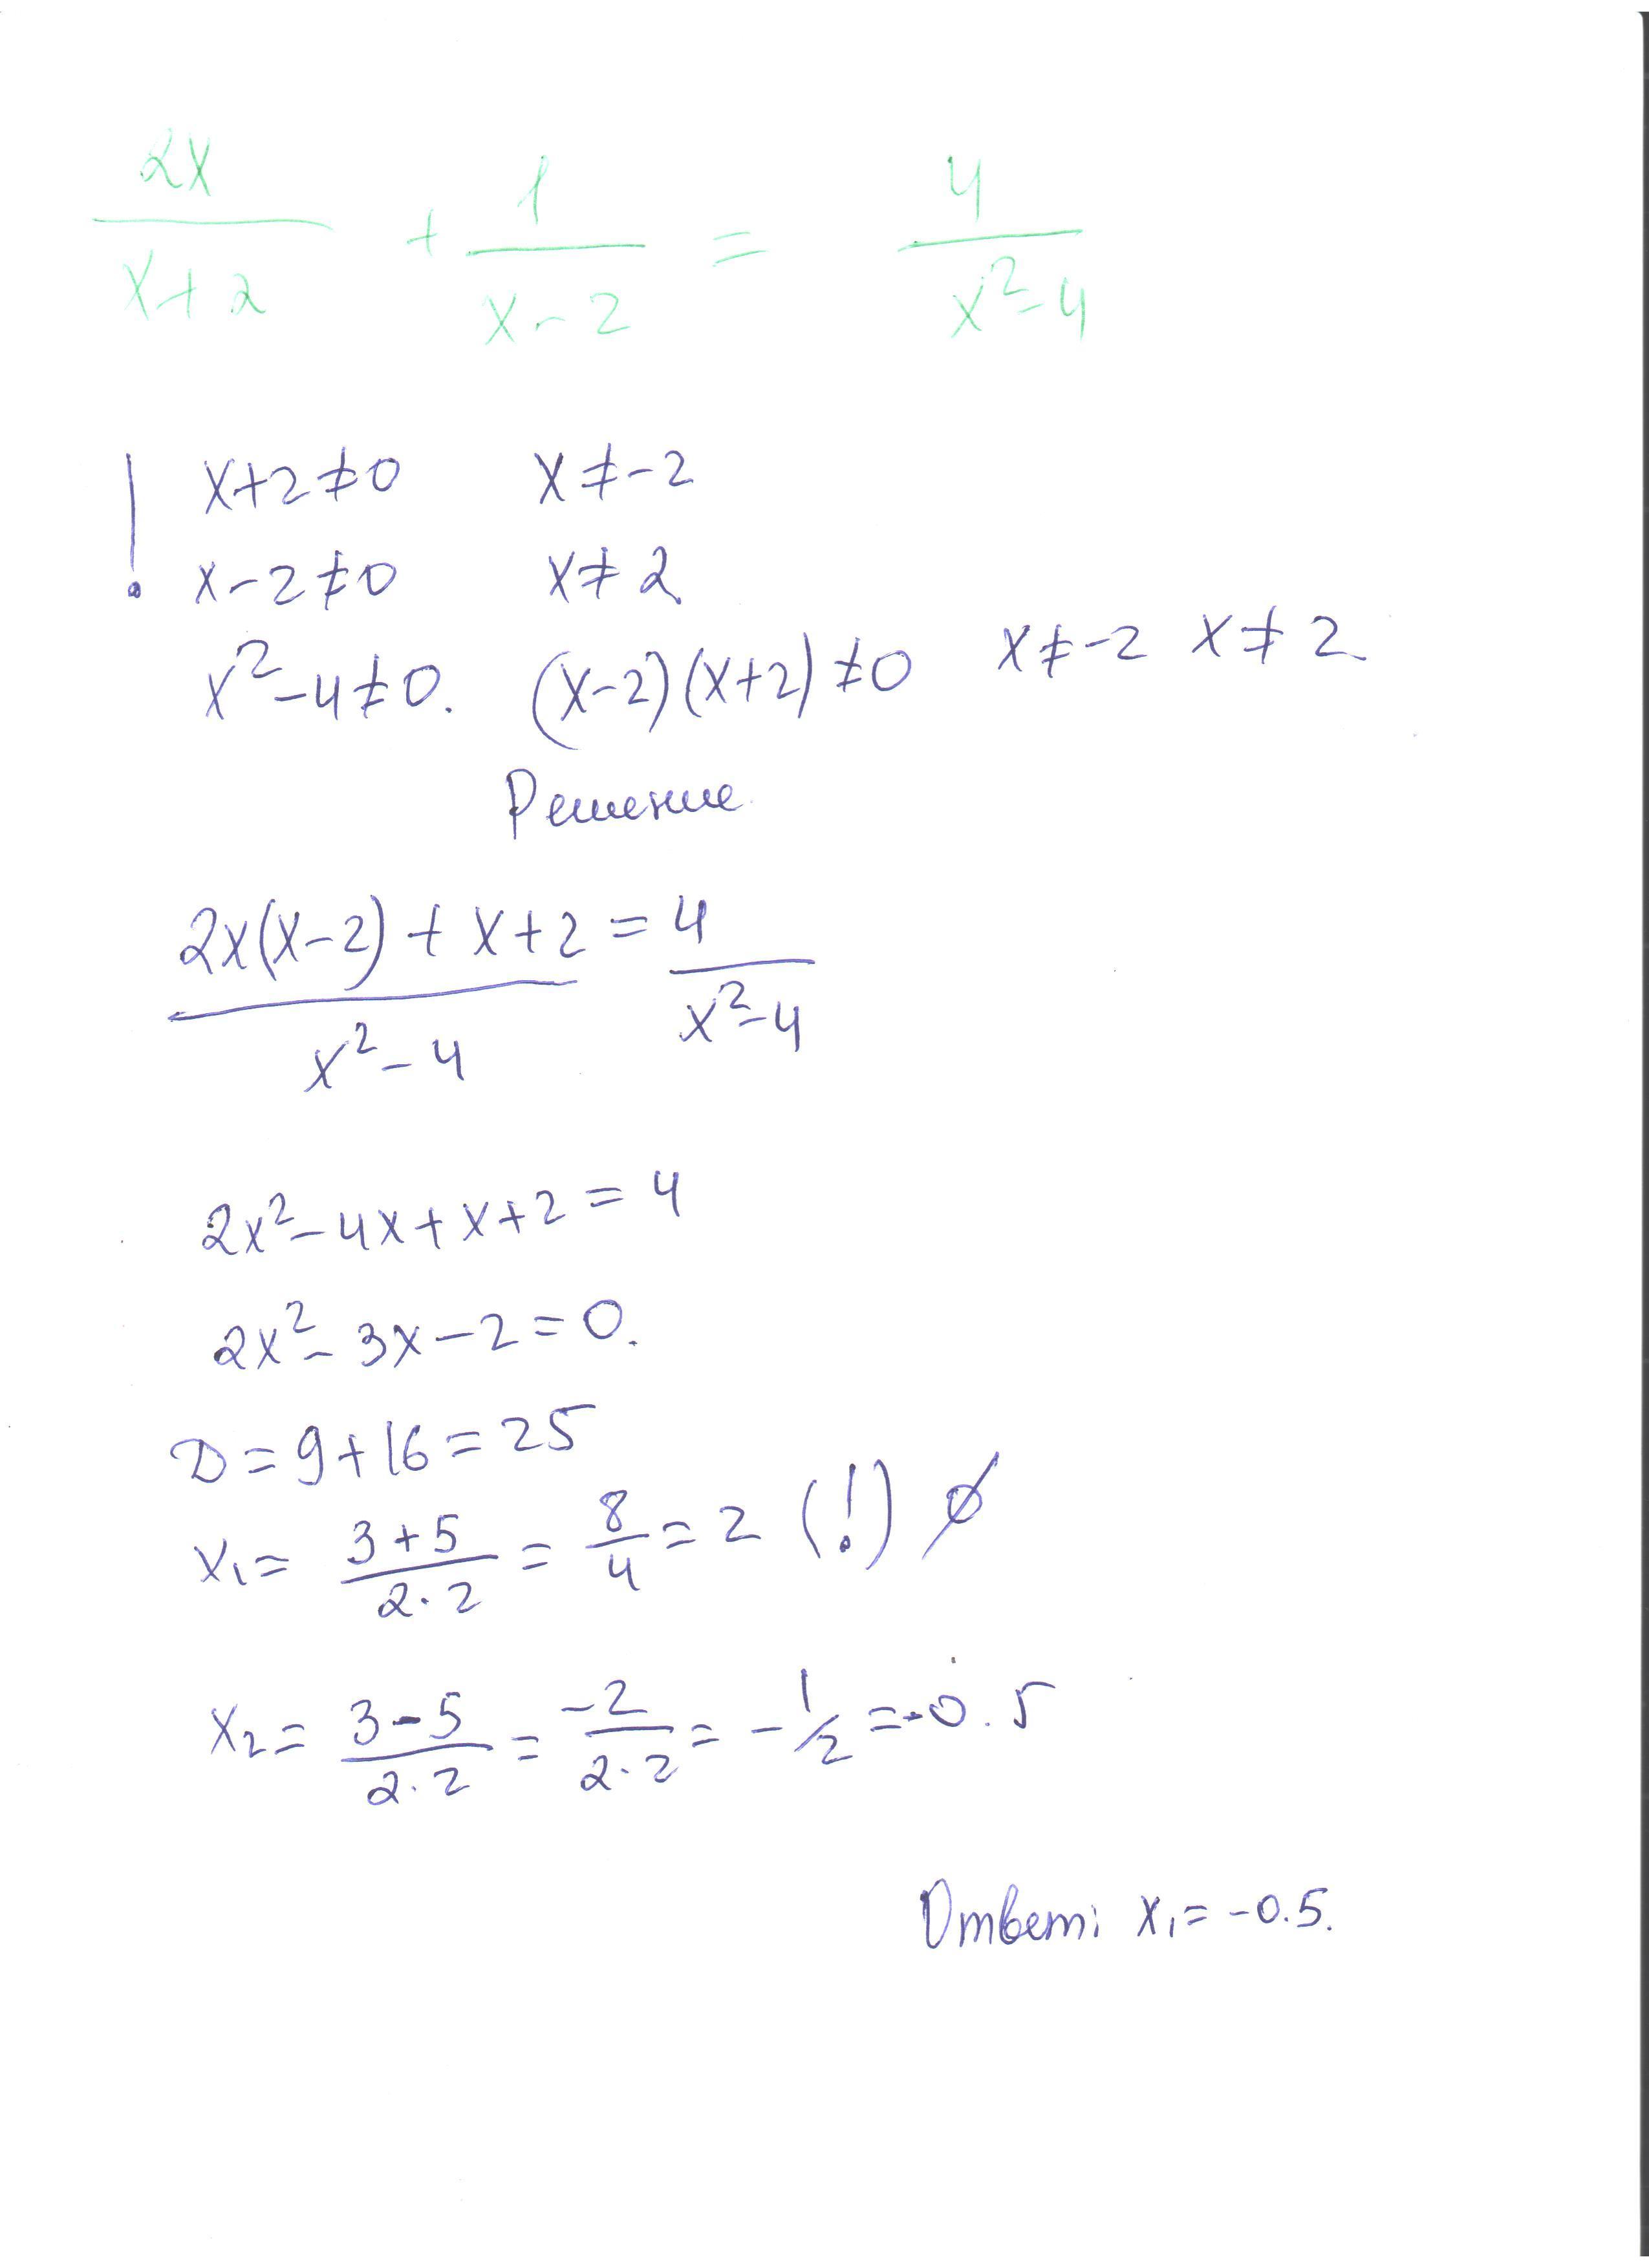 2x/(x+2) + 1/(x-2) = 4/(x²-4)
! x+2≠0 x≠-2
x-2≠0 x≠2
x²-4≠0. (x-2)(x+2)≠0 x≠-2 x≠2
Решение
(2x(x-2)+x+2)/(x²-4) = 4/(x²-4)
2x²-4x+x+2=4
2x²-3x-2=0.
D=9+16=25
x₁= (3+5)/(2·2) = 8/4 = 2 (!) ∅
x₂= (3-5)/(2·2) = -2/(2·2) = -1/2 = -0.5
Ответ: x₁= -0.5.